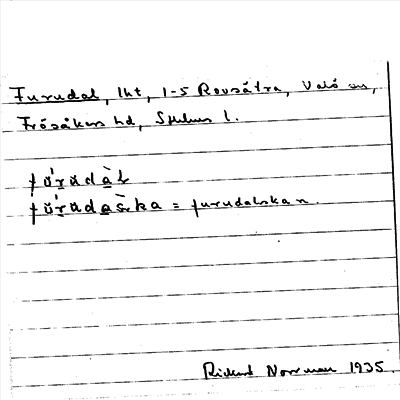 Furudal, lht, 1-5 Rovsätra, Valö sn,
Frösåkers hd, Sthlms l.
fu̇́ṟŭdà̱ɫ
fu̇́ṟŭda̱s̀ka = furudalskan.
Rickard Norrman 1935.